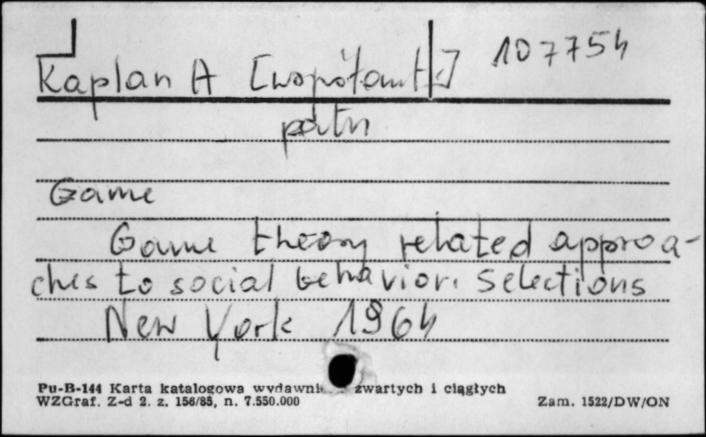 Kaplan A [współaut] 107754
patrz
Game
Game theory related approa-
ches to social behavior. Selections
New York 1964
Pu-B-144 Karta katalogowa wydawni zwartych i ciągłych
WZGraf. Z-d 2. z. 156/85, n. 7.550.000 Zam. 1522/DW/ON